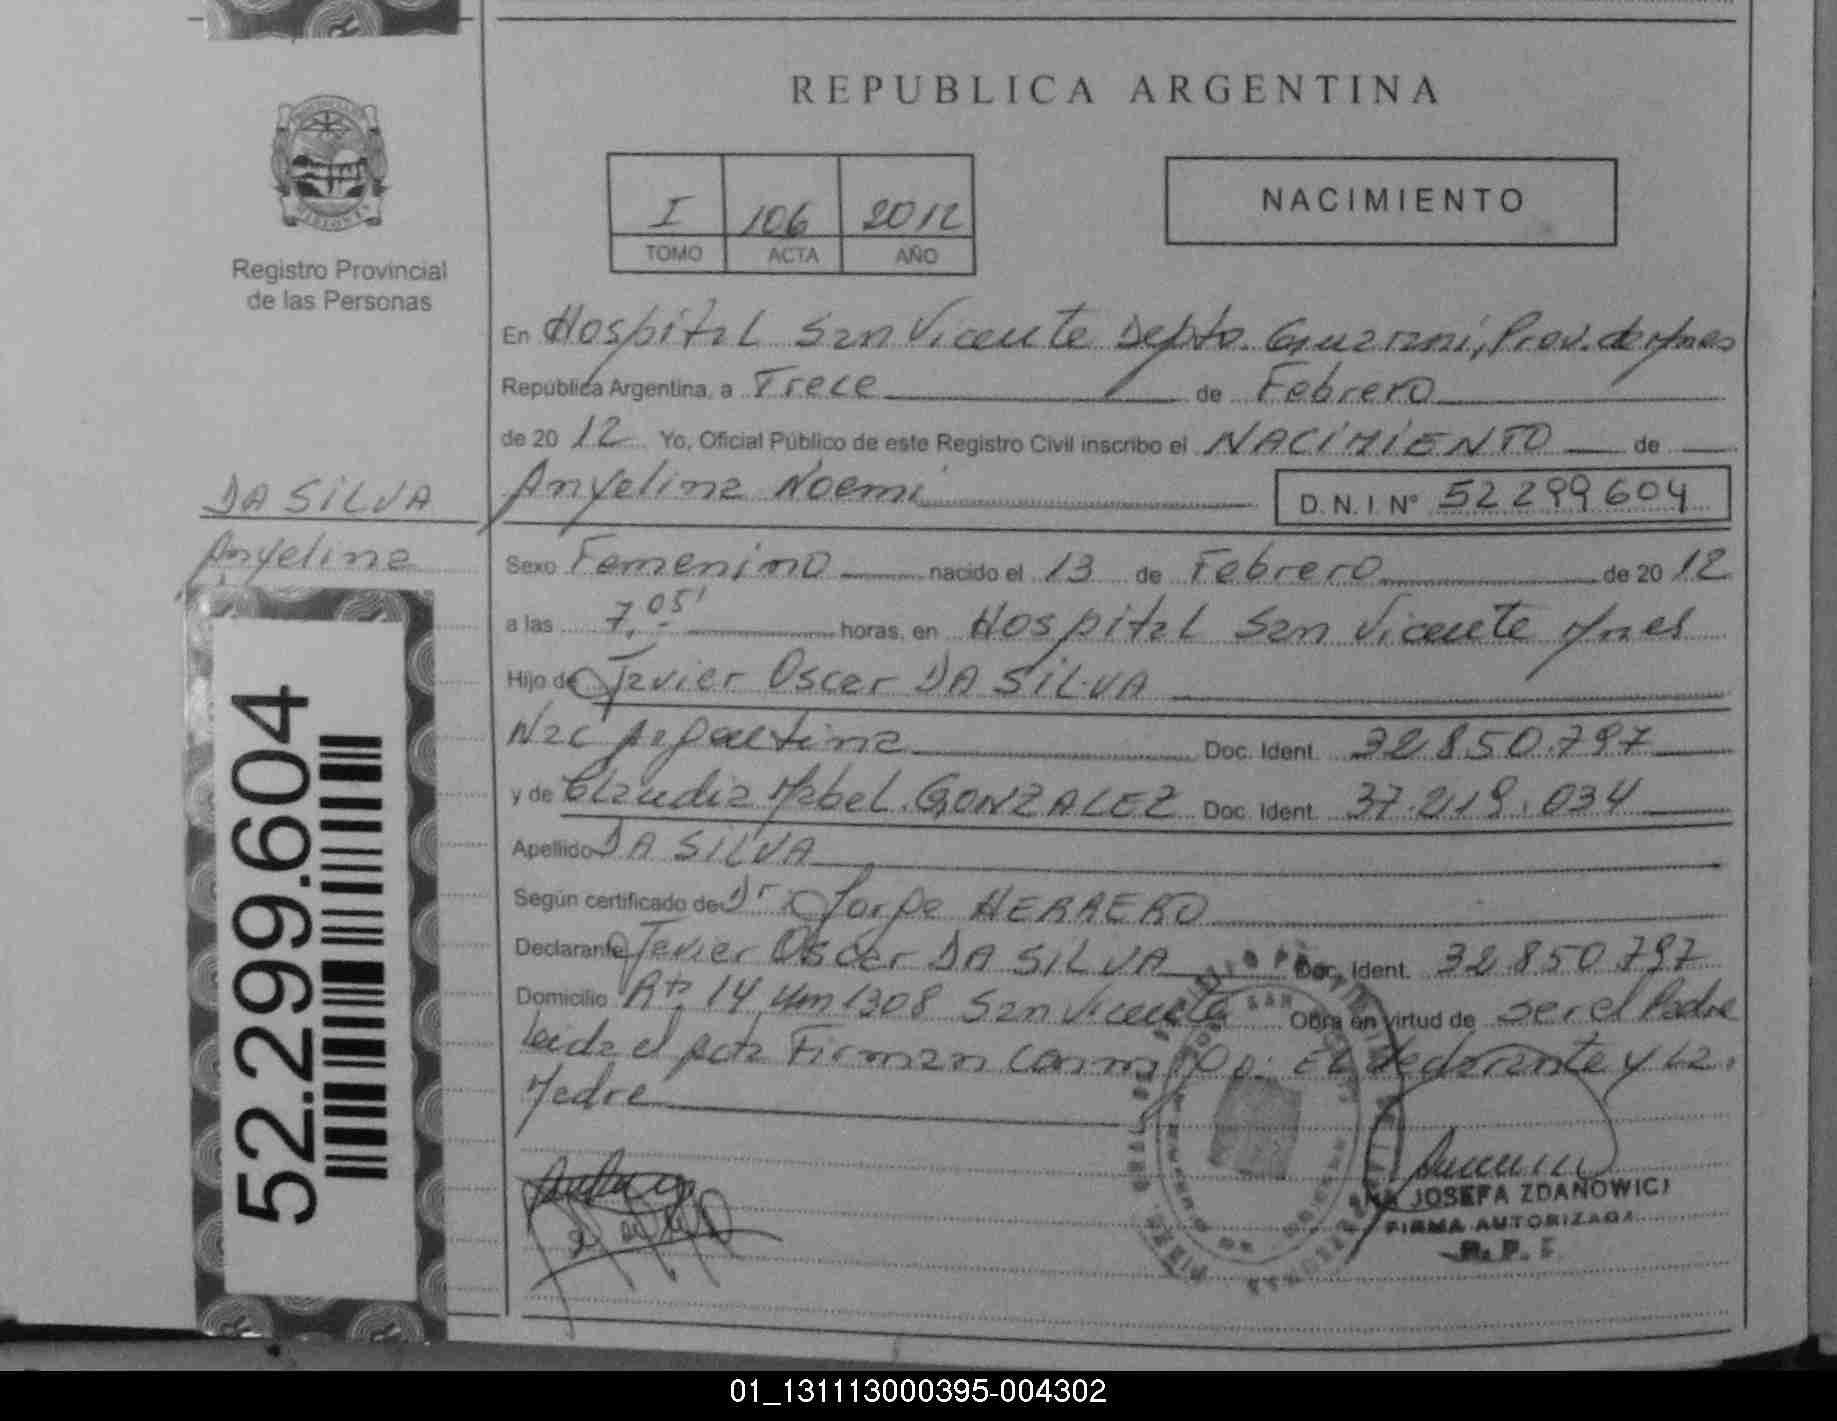 REPUBLICA ARGENTINA
I 106 2012
TOMO ACTA AÑO
NACIMIENTO
Registro Provincial
de las Personas
En Hospital San Vicente Depto. Guarani, Prov. de Mnes
República Argentina, a Trece de Febrero
de 2012 Yo, Oficial Público de este Registro Civil inscribo el NACIMIENTO de
Anyelina Noemi D.N.I. Nº 52299604
DA SILVA
Anyelina
52.299.604
Sexo Femenino nacido el 13 de Febrero de 2012
a las 7,05' horas, en Hospital San Vicente Mnes
Hijo de Javier Oscar DA SILVA
Nac Argentina Doc. Ident. 32.850.797
y de Claudia Mabel GONZALEZ Doc. Ident. 37.219.034
Apellido DA SILVA
Según certificado de Dr. Jorge HERRERO
Declarante Javier Oscar DA SILVA Doc. Ident. 32.850.797
Domicilio Rta 14 Km 1308 San Vicente Obra en virtud de ser el Padre
Leida el Acta Firman Conmigo: El declarante y La
Madre
JOSEFA ZDANOWICZ
FIRMA AUTORIZADA
R. P.
01_131113000395-004302